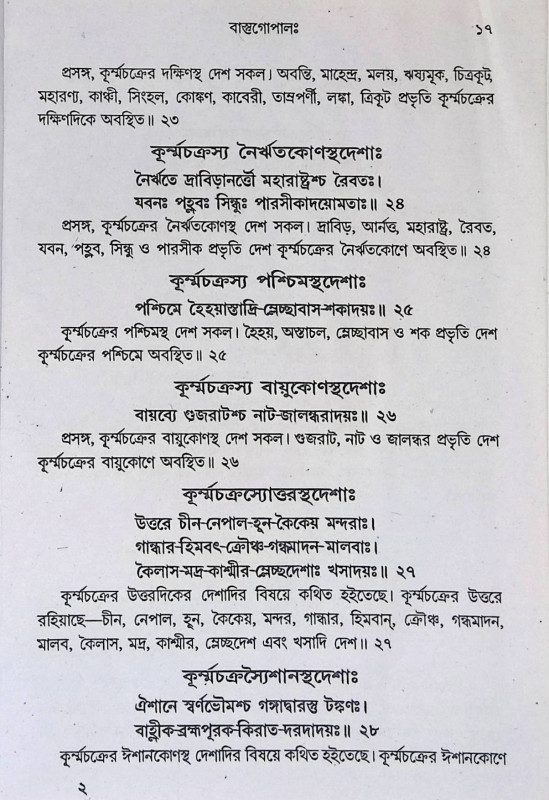 বাস্তুগোপালঃ ১৭
প্রসঙ্গ, কূর্ম্মচক্রের দক্ষিণস্থ দেশ সকল। অবন্তি, মাহেন্দ্র, মলয়, ঋষ্যমূক, চিত্রকূট,
মহারণ্য, কাঞ্চী, সিংহল, কোঙ্কণ, কাবেরী, তাম্রপর্ণী, লঙ্কা, ত্রিকূট প্রভৃতি কূর্ম্মচক্রের
দক্ষিণদিকে অবস্থিত॥ ২৩
কূর্ম্মচক্রস্য নৈর্ঋতকোণস্থদেশাঃ
নৈর্ঋতে দ্রাবিড়ানর্ত্তৌ মহারাষ্ট্রশ্চ রৈবতঃ।
যবনঃ পহ্লবঃ সিন্ধুঃ পারসীকাদয়োমতাঃ॥ ২৪
প্রসঙ্গ, কূর্ম্মচক্রের নৈর্ঋতকোণস্থ দেশ সকল। দ্রাবিড়, আর্নত্ত, মহারাষ্ট্র, রৈবত,
যবন, পহ্লব, সিন্ধু ও পারসীক প্রভৃতি দেশ কূর্ম্মচক্রের নৈর্ঋতকোণে অবস্থিত॥ ২৪
কূর্ম্মচক্রস্য পশ্চিমস্থদেশাঃ
পশ্চিমে হৈহয়াস্তাদ্রি-ম্লেচ্ছাবাস-শকাদয়ঃ॥ ২৫
কূর্ম্মচক্রের পশ্চিমস্থ দেশ সকল। হৈহয়, অস্তাচল, ম্লেচ্ছাবাস ও শক প্রভৃতি দেশ
কূর্ম্মচক্রের পশ্চিমে অবস্থিত॥ ২৫
কূর্ম্মচক্রস্য বায়ুকোণস্থদেশাঃ
বায়ব্যে গুজরাটশ্চ নাট-জালন্ধরাদয়ঃ॥ ২৬
প্রসঙ্গ, কূর্ম্মচক্রের বায়ুকোণস্থ দেশ সকল। গুজরাট, নাট ও জালন্ধর প্রভৃতি দেশ
কূর্ম্মচক্রের বায়ুকোণে অবস্থিত॥ ২৬
কূর্ম্মচক্রস্যোত্তরস্থদেশাঃ
উত্তরে চীন-নেপাল-হূন-কৈকেয় মন্দরাঃ।
গান্ধার-হিমবৎ-ক্রৌঞ্চ-গন্ধমাদন-মালবাঃ।
কৈলাস-মদ্র-কাশ্মীর-ম্লেচ্ছদেশাঃ খসাদয়ঃ॥ ২৭
কূর্ম্মচক্রের উত্তরদিকের দেশাদির বিষয়ে কথিত হইতেছে। কূর্ম্মচক্রের উত্তরে
রহিয়াছে—চীন, নেপাল, হূন, কৈকেয়, মন্দর, গান্ধার, হিমবান্, ক্রৌঞ্চ, গন্ধমাদন,
মালব, কৈলাস, মদ্র, কাশ্মীর, ম্লেচ্ছদেশ এবং খসাদি দেশ॥ ২৭
কূর্ম্মচক্রস্যৈশানস্থদেশাঃ
ঐশানে স্বর্ণভৌমশ্চ গঙ্গাদ্বারস্তু টঙ্কণঃ।
বাহ্লীক-ব্রহ্মপূরক-কিরাত-দরদাদয়ঃ॥ ২৮
কূর্ম্মচক্রের ঈশানকোণস্থ দেশাদির বিষয়ে কথিত হইতেছে। কূর্ম্মচক্রের ঈশানকোণে
২